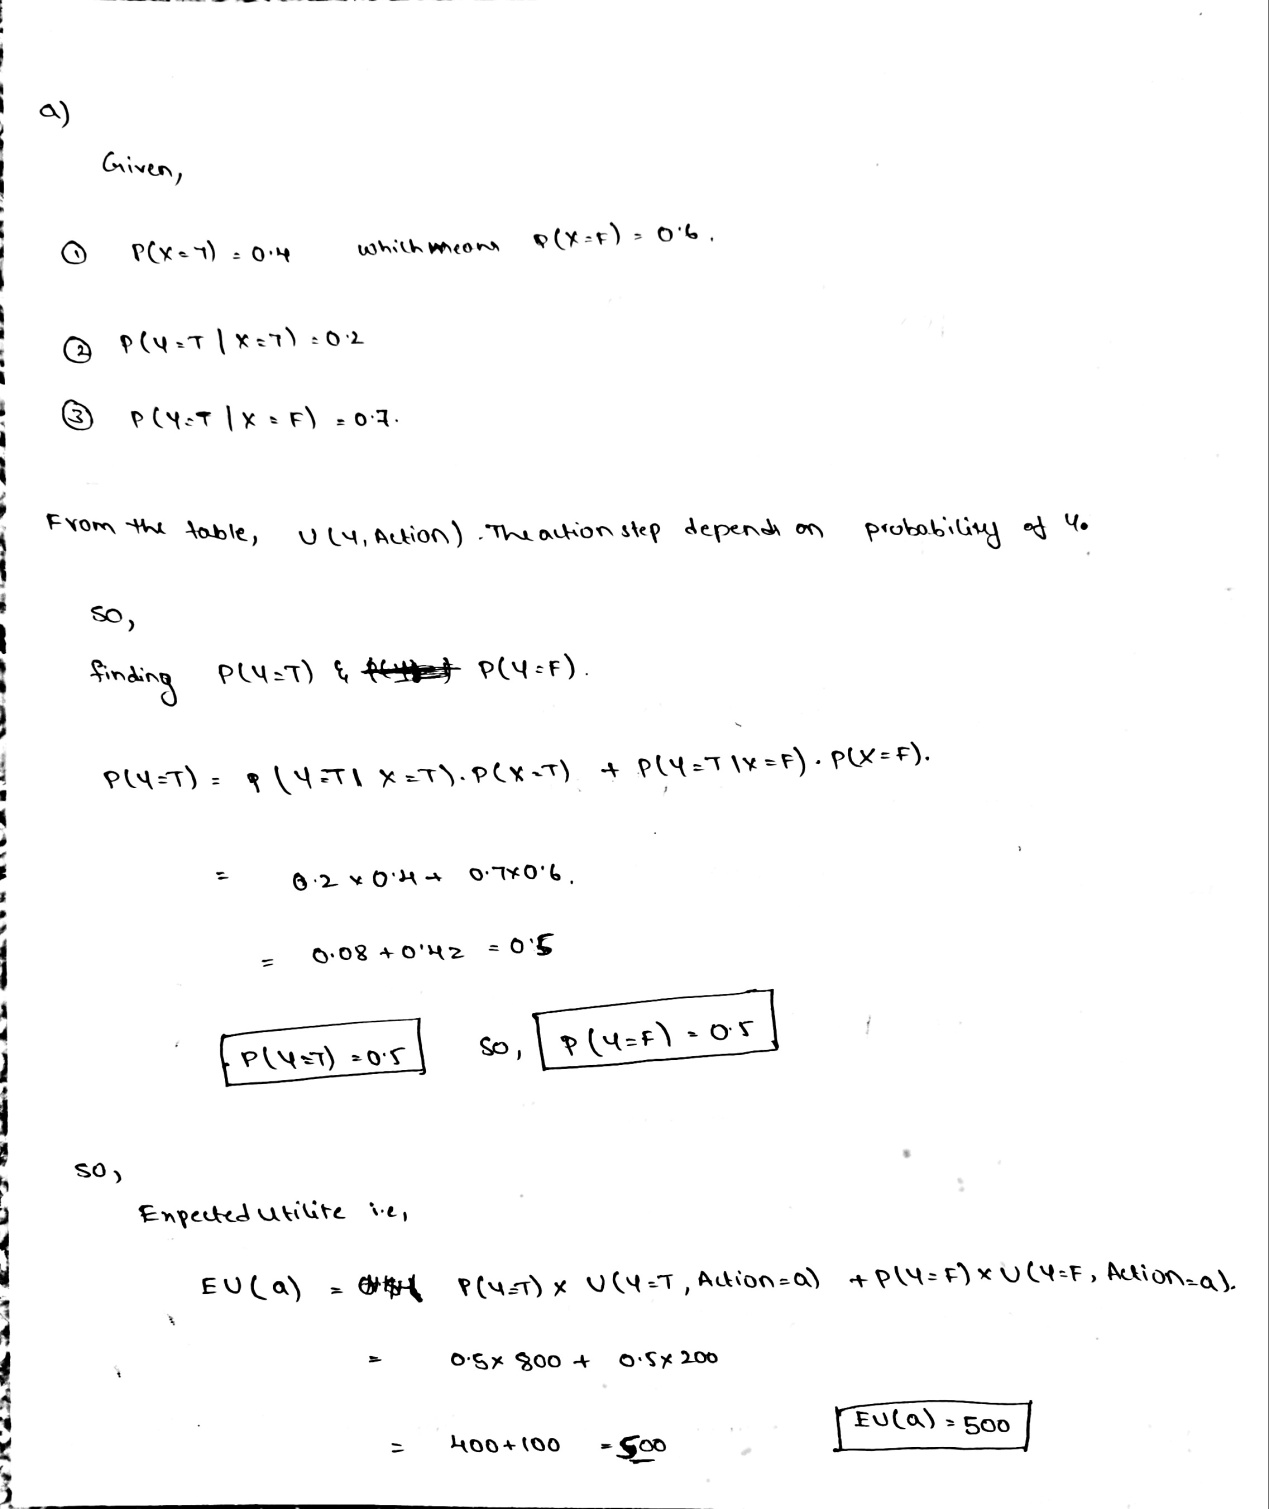 a)
Given,
① P(X=T) = 0.4 which means P(X=F) = 0.6.
② P(Y=T | X=T) = 0.2
③ P(Y=T | X=F) = 0.7.
From the table, U(Y, Action). The action step depends on probability of Y.
so,
finding P(Y=T) & P(Y=F).
P(Y=T) = P(Y=T | X=T).P(X=T) + P(Y=T | X=F).P(X=F).
= 0.2 x 0.4 + 0.7x0.6.
= 0.08 + 0.42 = 0.5
P(Y=T) = 0.5 so, P(Y=F) = 0.5
so,
Expected utilite i.e,
EU(a) = P(Y=T) x U(Y=T, Action=a) + P(Y=F) x U(Y=F, Action=a).
= 0.5x 800 + 0.5x 200
= 400+100 = 500 EU(a) = 500